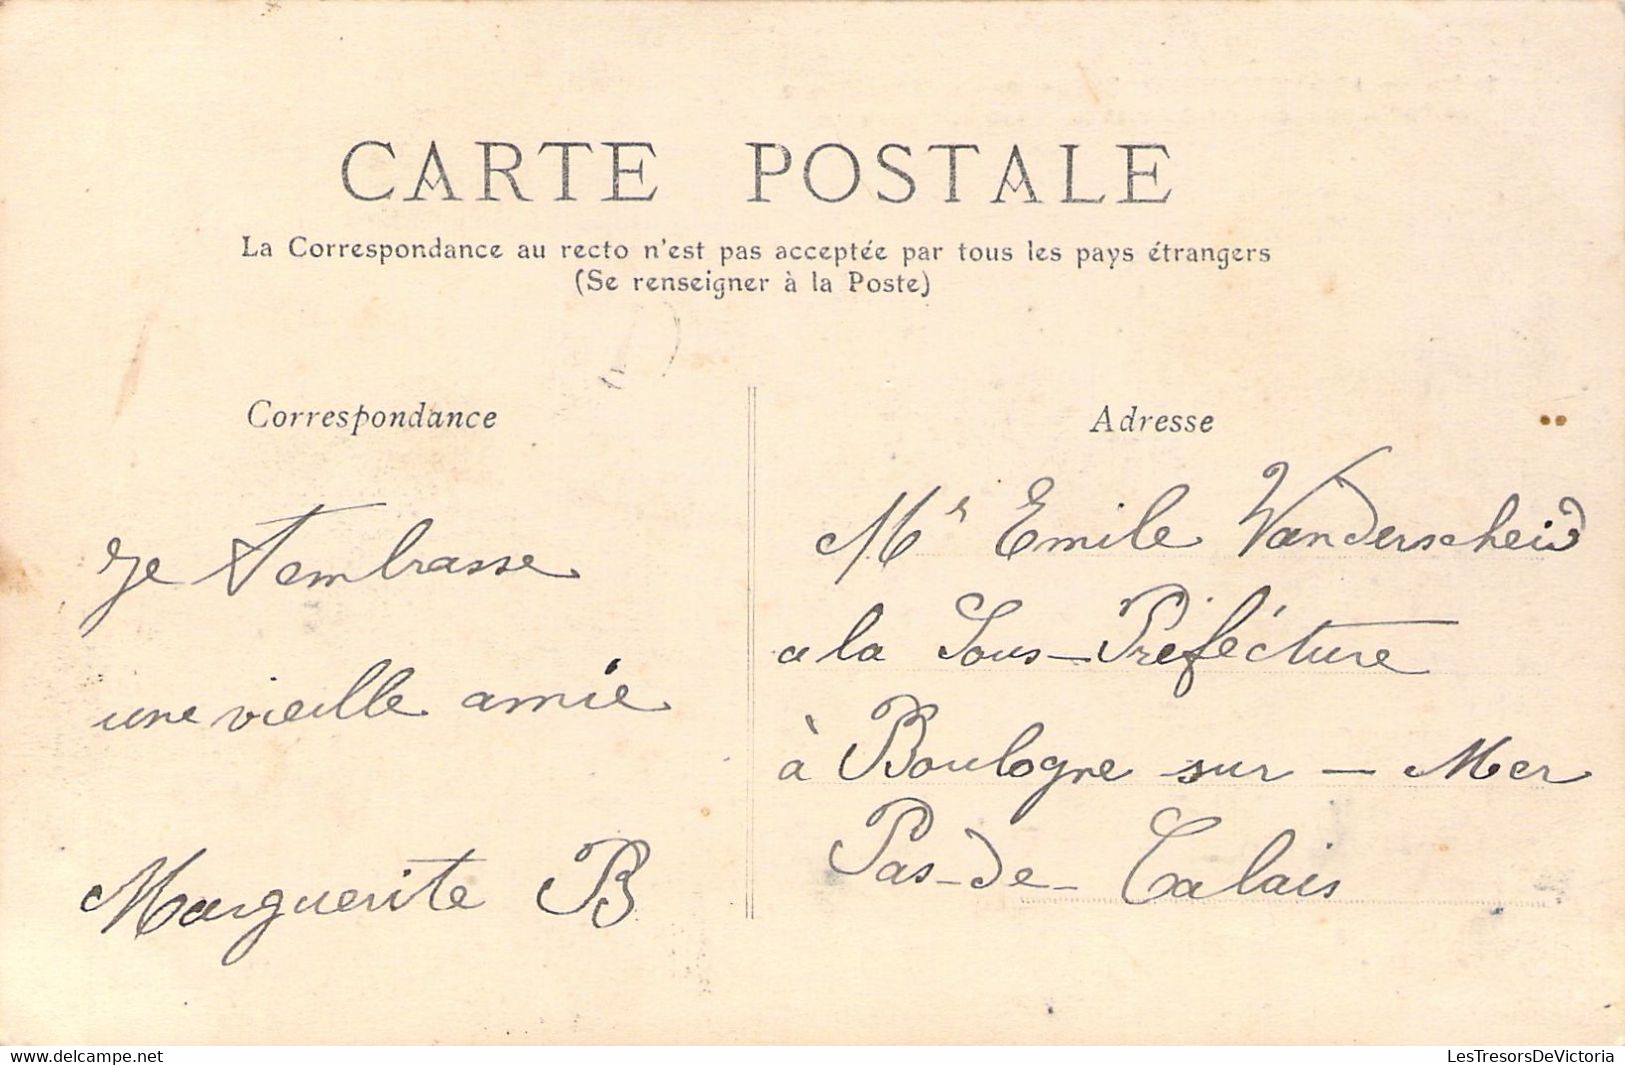 CARTE POSTALE
La Correspondance au recto n'est pas acceptée par tous les pays étrangers
(Se renseigner à la Poste)
Correspondance
Je t'embrasse
une vieille amie
Marguerite B
Adresse
Mr Emile Vanderscheid
a la Sous-Préfécture
à Boulogne sur - Mer
Pas-de-Calais
delcampe.net
LesTresorsDeVictoria